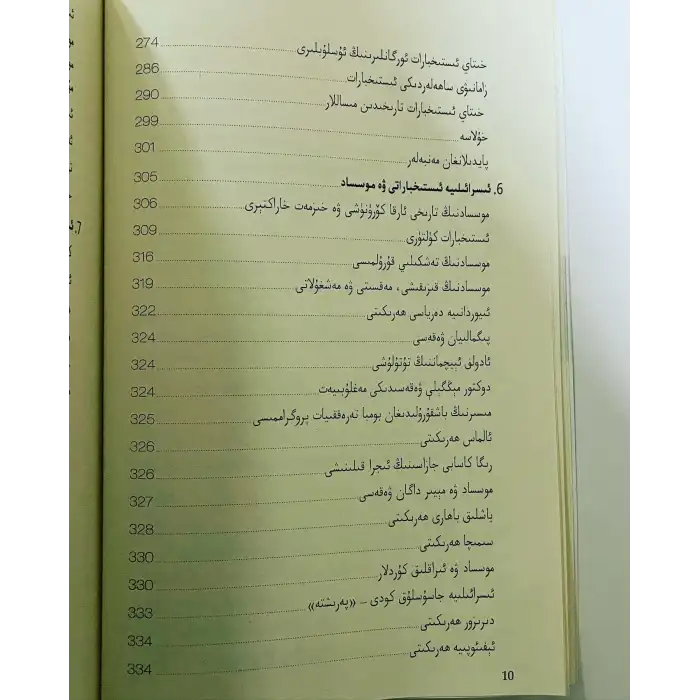 خىتاي ئىستىخبارات ئورگانلىرىنىڭ ئۇسلۇبلىرى 274
زامانىۋى ساھەلەردىكى ئىستىخبارات 286
خىتاي ئىستىخبارات تارىخىدىن مىساللار 290
خۇلاسە 299
پايدىلانغان مەنبەلەر 301
6. ئىسرائىلىيە ئىستىخباراتى ۋە موسساد 305
موسسادنىڭ تارىخى ئارقا كۆرۈنۈشى ۋە خىزمەت خاراكتېرى 306
ئىستىخبارات كۇلتۇرى 309
موسسادنىڭ تەشكىلىي قۇرۇلمىسى 316
موسسادنىڭ قىزىقىشى، مەقسىتى ۋە مەشغۇلاتى 319
ئىيوردانىيە دەرياسى ھەرىكىتى 322
پىگمالىيان ۋەقەسى 324
ئادولق ئىيچماننىڭ تۇتۇلۇشى 324
دوكتور مېڭگېلې ۋەقەسىدىكى مەغلۇبىيەت 324
مىسىرنىڭ باشقۇرۇلىدىغان بومبا تەرەققىيات پروگراممىسى 325
ئالماس ھەرىكىتى 326
رىگا كاسابى جازاسىنىڭ ئىجرا قىلىنىشى 326
موسساد ۋە مېيىر داگان ۋەقەسى 327
ياشلىق باھارى ھەرىكىتى 328
سىمىچا ھەرىكىتى 330
موسساد ۋە ئىراقلىق كۇردلار 330
ئىسرائىلىيە جاسۇسلۇق كودى – «پەرىشتە» 333
دىرىزور ھەرىكىتى 334
ئېفىئوپىيە ھەرىكىتى 334
10